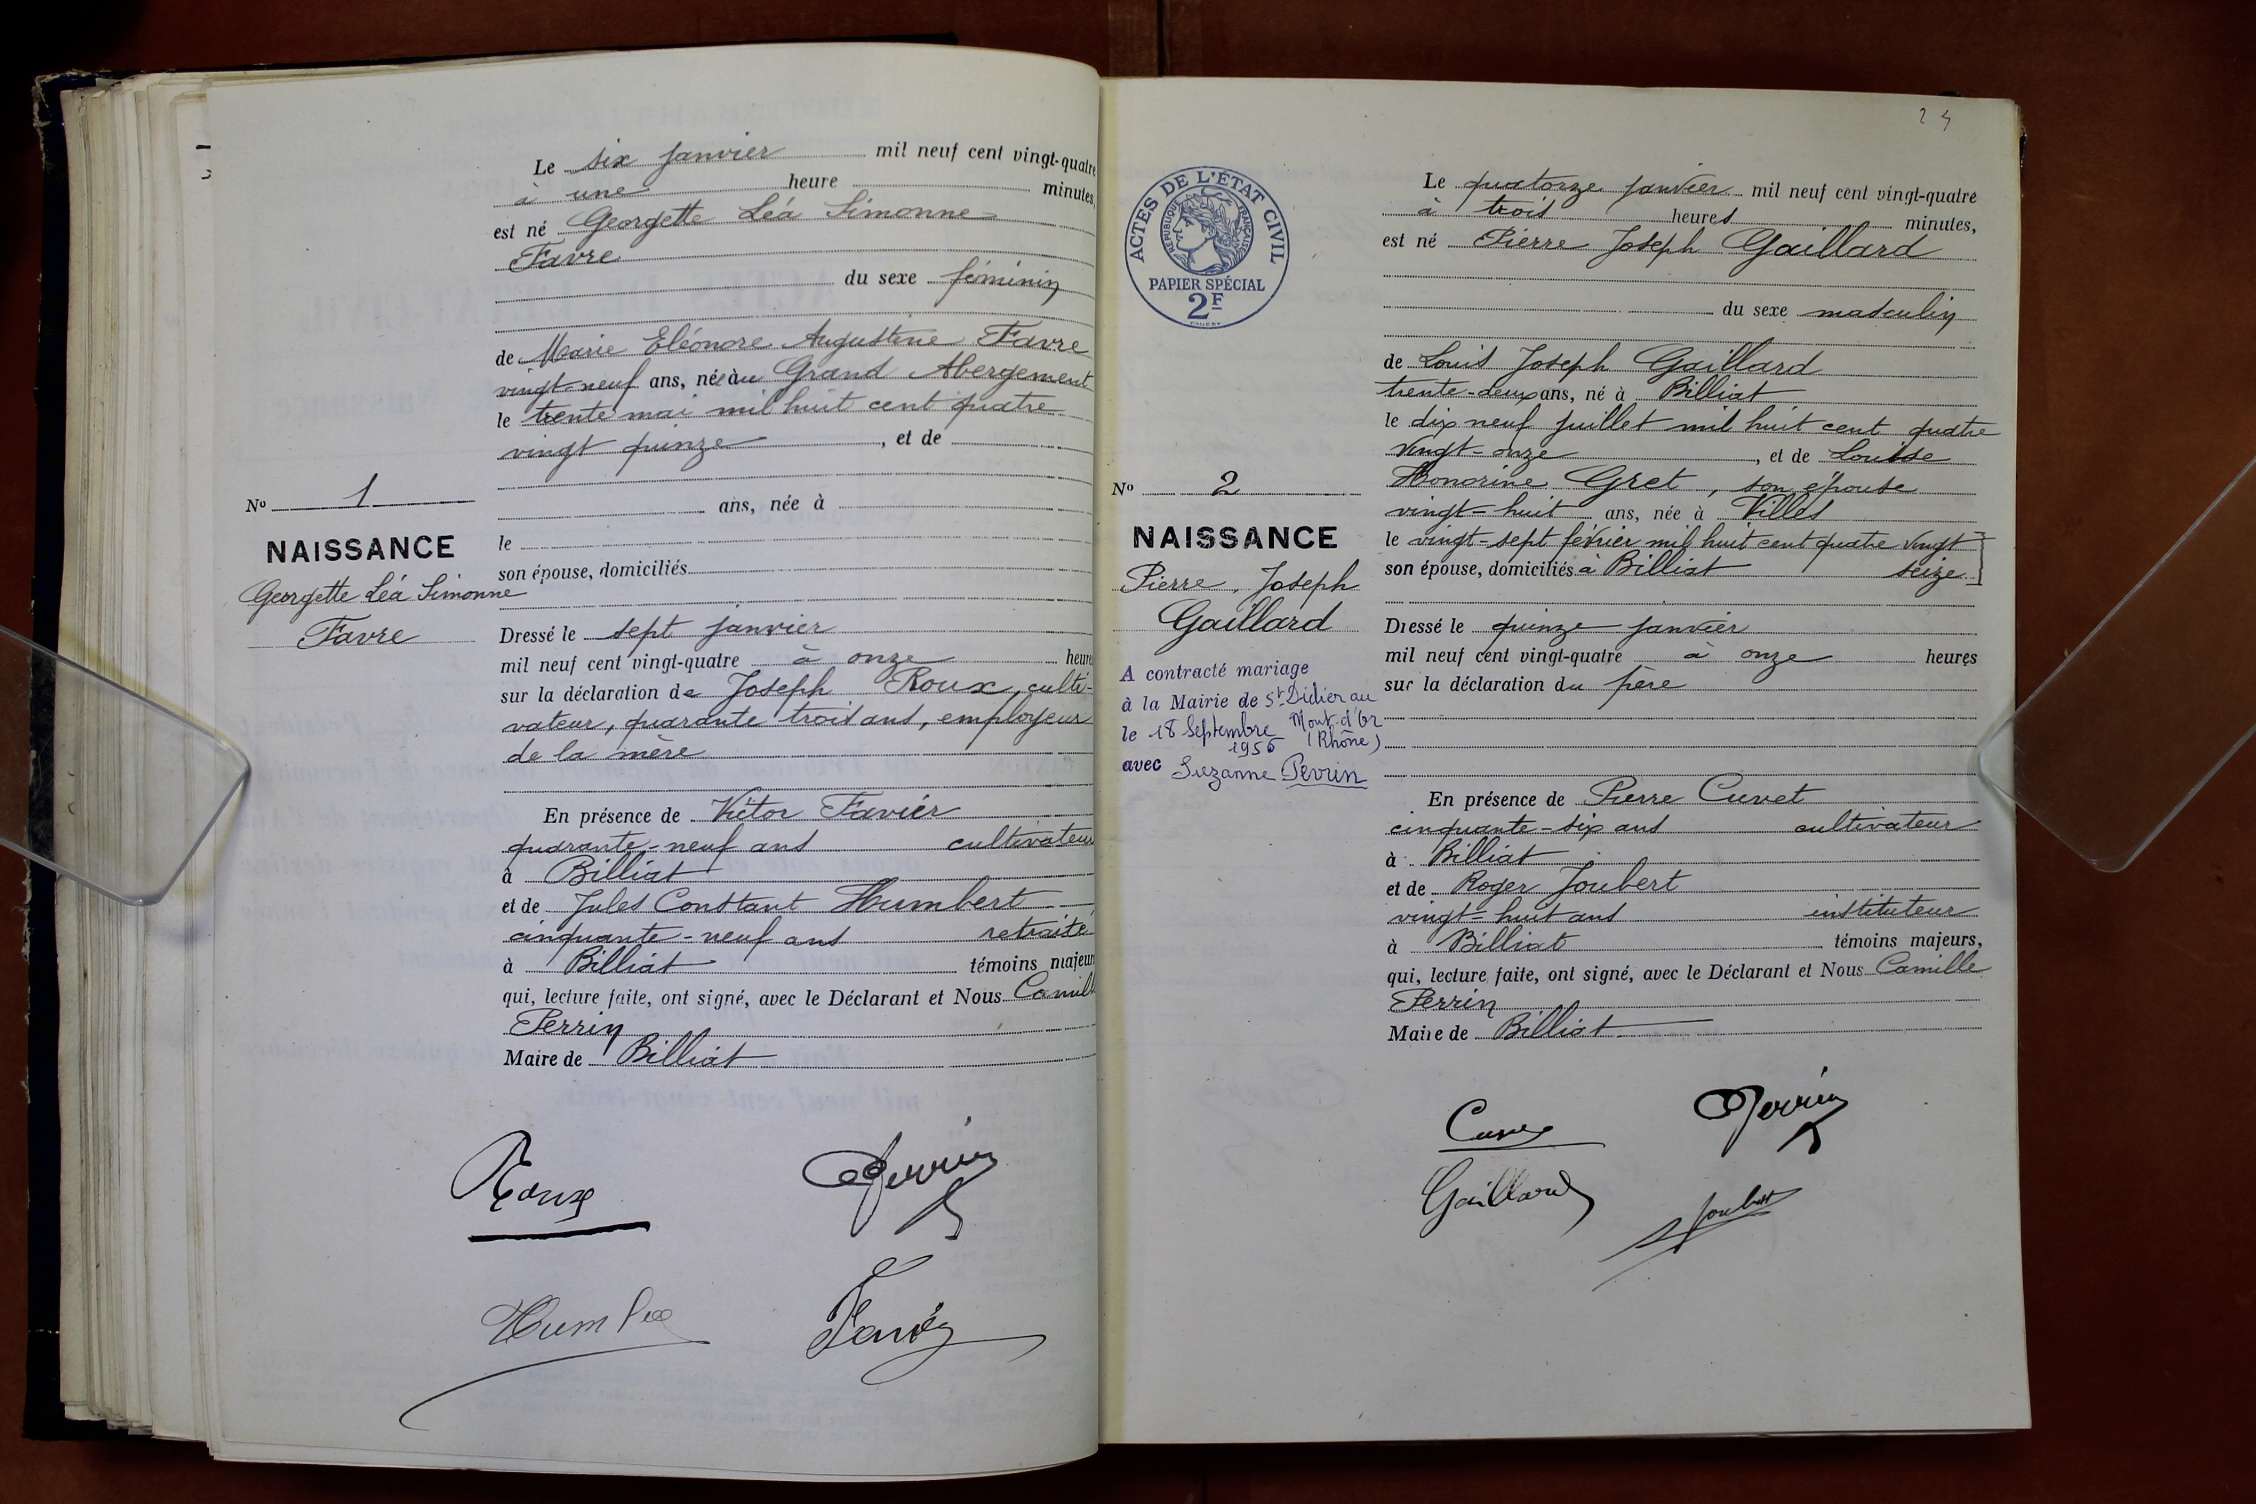 Le six janvier mil neuf cent vingt-quatre
à une heure minutes,
est né Georgette Léa Simonne
Favre
du sexe féminin
de Marie Eléonore Augustine Favre
vingt-neuf ans, née au Grand Abergement
le trente mai mil huit cent quatre
vingt quinze, et de
ans, née à
le
son épouse, domiciliés
Nº 1
NAISSANCE
Georgette Léa Simonne
Favre
Dressé le sept janvier
mil neuf cent vingt-quatre à onze heure
sur la déclaration de Joseph Roux, culti-
vateur, quarante trois ans, employeur
de la mère
En présence de Victor Favier
quarante-neuf ans cultivateur
à Billiat
et de Jules Constant Humbert
cinquante-neuf ans retraité
à Billiat témoins majeurs
qui, lecture faite, ont signé, avec le Déclarant et Nous Camill
Perrin
Maire de Billiat
Roux Perrin
24
ACTES DE L'ÉTAT CIVIL
RÉPUBLIQUE FRANÇAISE
PAPIER SPÉCIAL
2F
Le quatorze janvier mil neuf cent vingt-quatre
à trois heures minutes,
est né Pierre Joseph Gaillard
du sexe masculin
de Louis Joseph Gaillard
trente-deux ans, né à Billiat
le dix neuf juillet mil huit cent quatre
vingt-onze, et de Louise
Honorine Gret, son épouse
vingt-huit ans, née à Villes
le vingt-sept février mil huit cent quatre vingt
son épouse, domiciliés à Billiat seize
Nº 2
NAISSANCE
Pierre Joseph
Gaillard
A contracté mariage
à la Mairie de St Didier au
Mont d'Or
le 18 Septembre (Rhône)
1956
avec Suzanne Perrin
Dressé le quinze janvier
mil neuf cent vingt-quatre à onze heures
sur la déclaration du père
En présence de Pierre Cuvet
cinquante-six ans cultivateur
à Billiat
et de Roger Joubert
vingt-huit ans instituteur
à Billiat témoins majeurs,
qui, lecture faite, ont signé, avec le Déclarant et Nous Camille
Perrin
Maire de Billiat
Perrin
Gaillard
Joubert